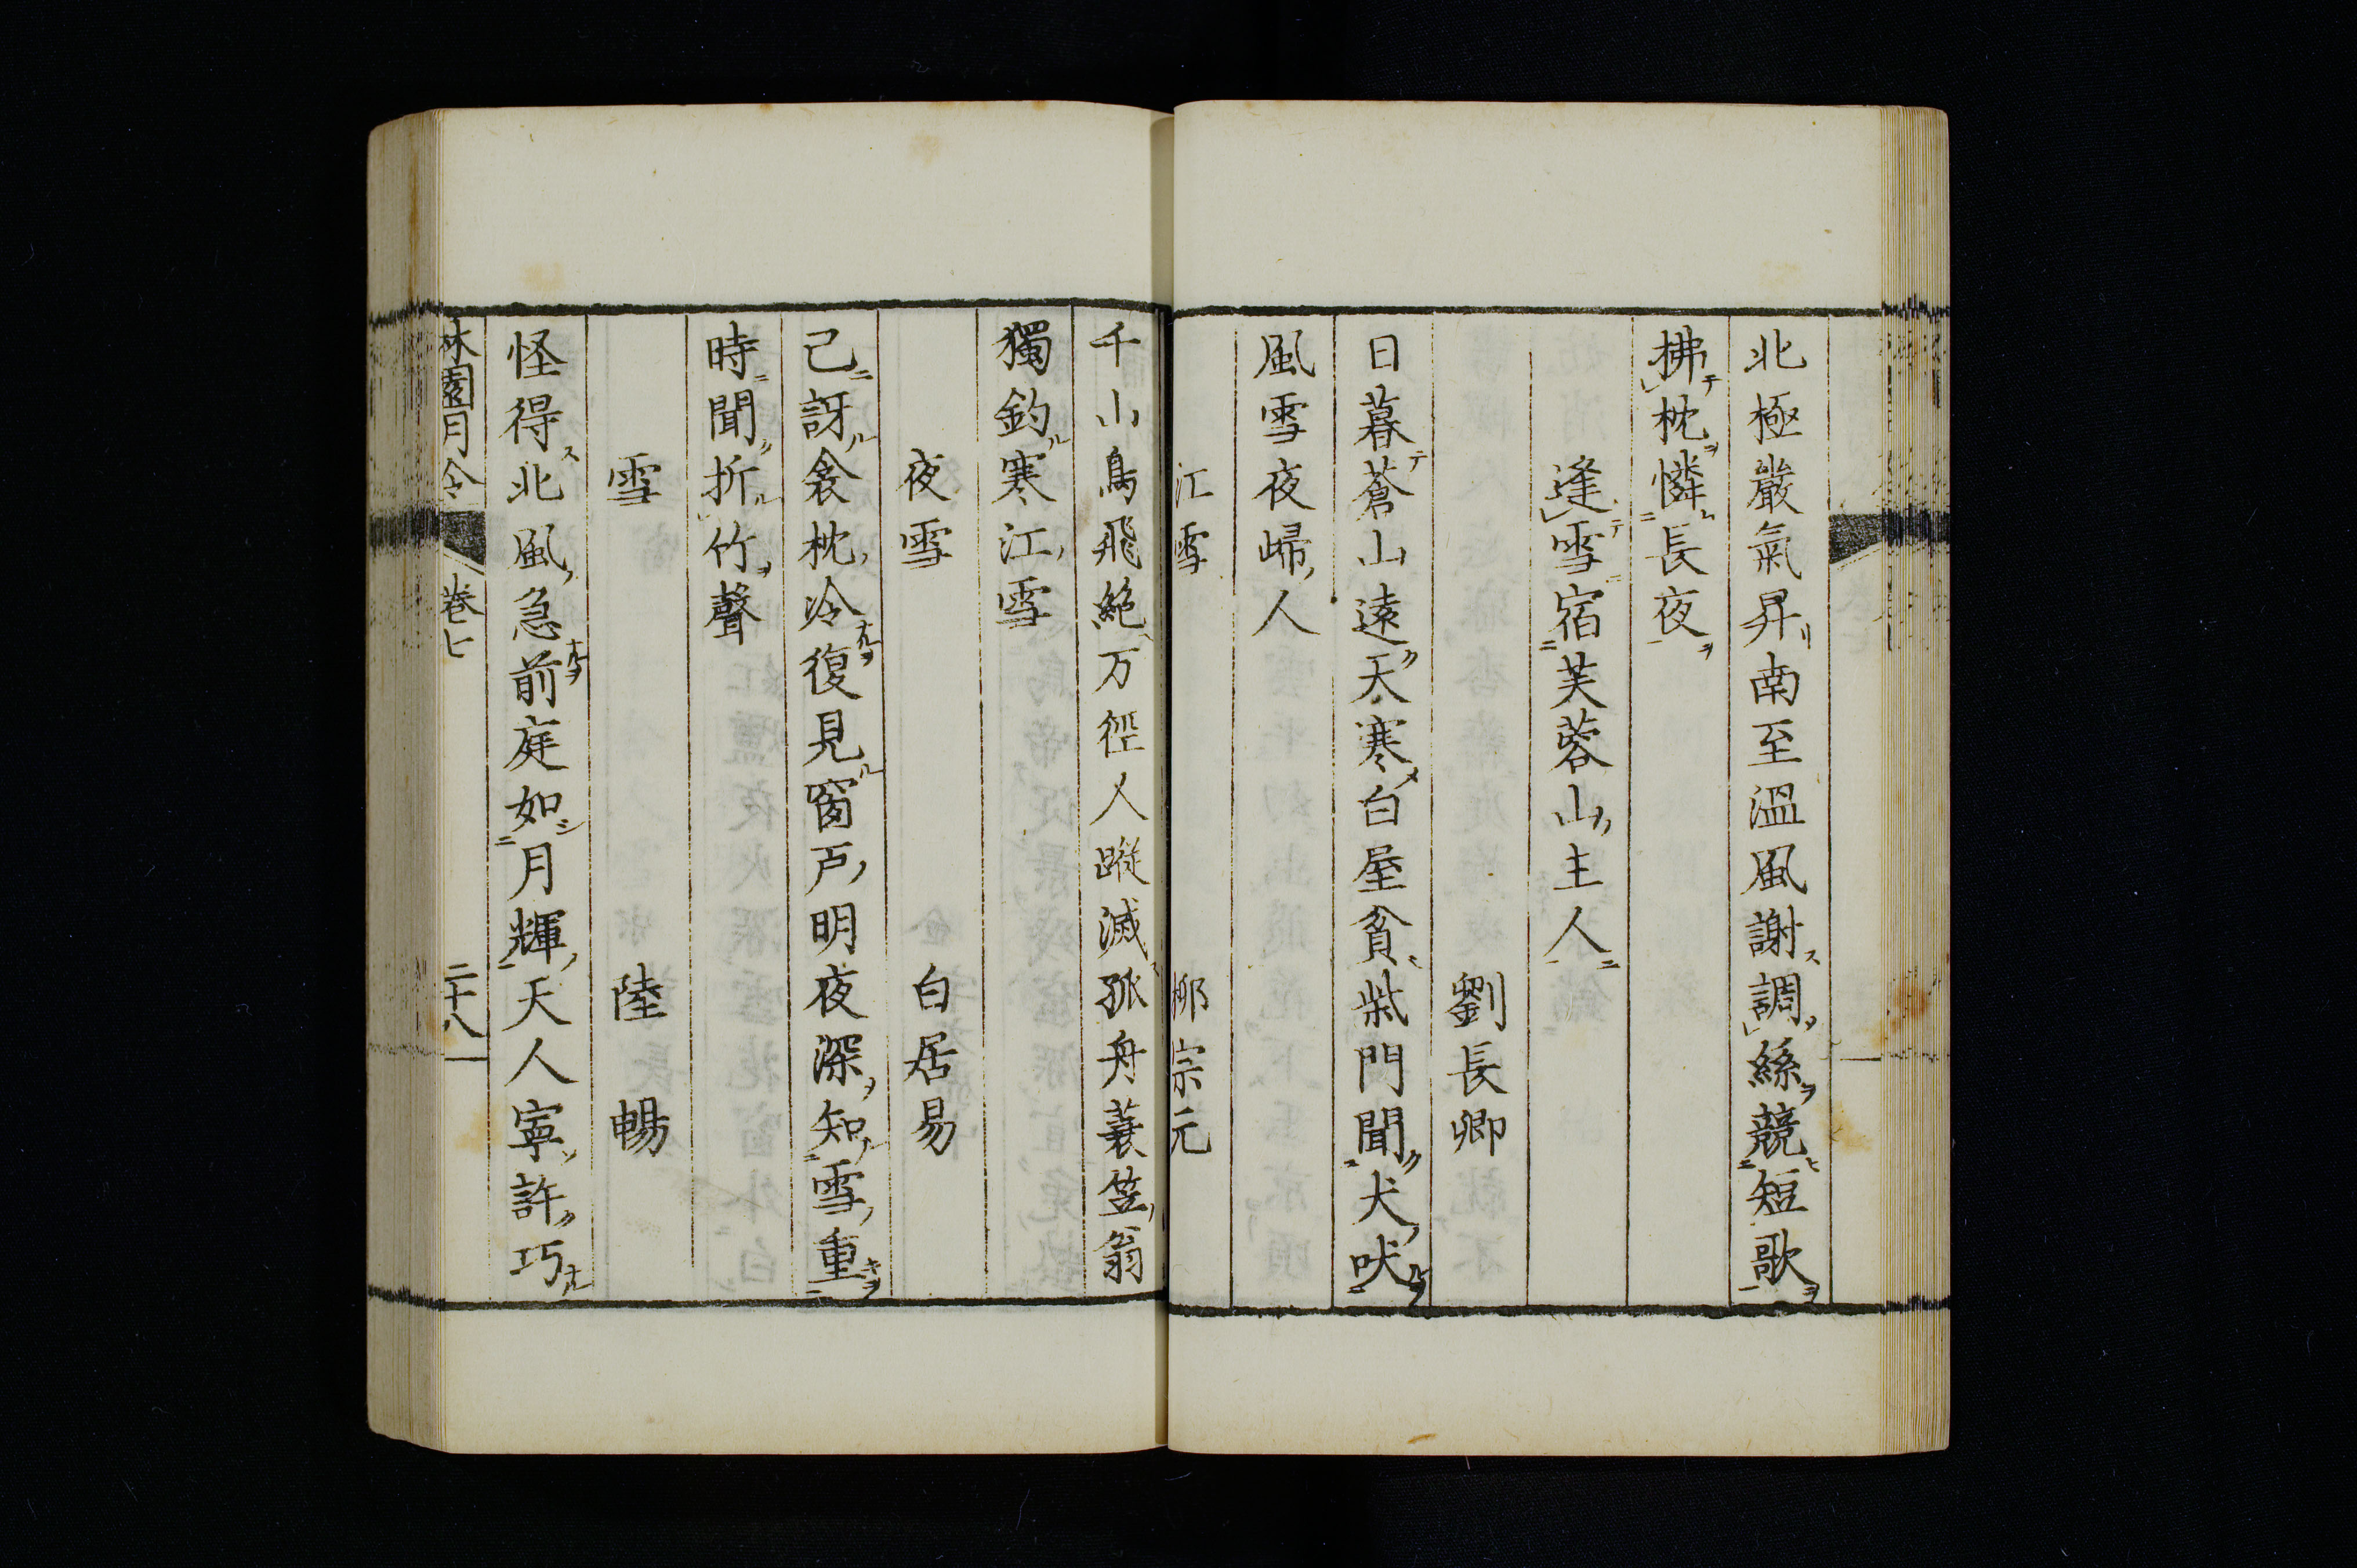 北極嚴氣昇南至溫風謝調絲競短歌
拂枕憐長夜
逢雪宿芙蓉山主人
劉長卿
日暮蒼山遠天寒白屋貧柴門聞犬吠
風雪夜歸人
江雪 柳宗元
千山鳥飛絶万徑人蹤滅孤舟蓑笠翁
獨釣寒江雪
夜雪 白居易
已訝衾枕冷復見窗戸明夜深知雪重
時聞折竹聲
雪 陸暢
怪得北風急前庭如月輝天人寧許巧
林園月令 卷七 二十八